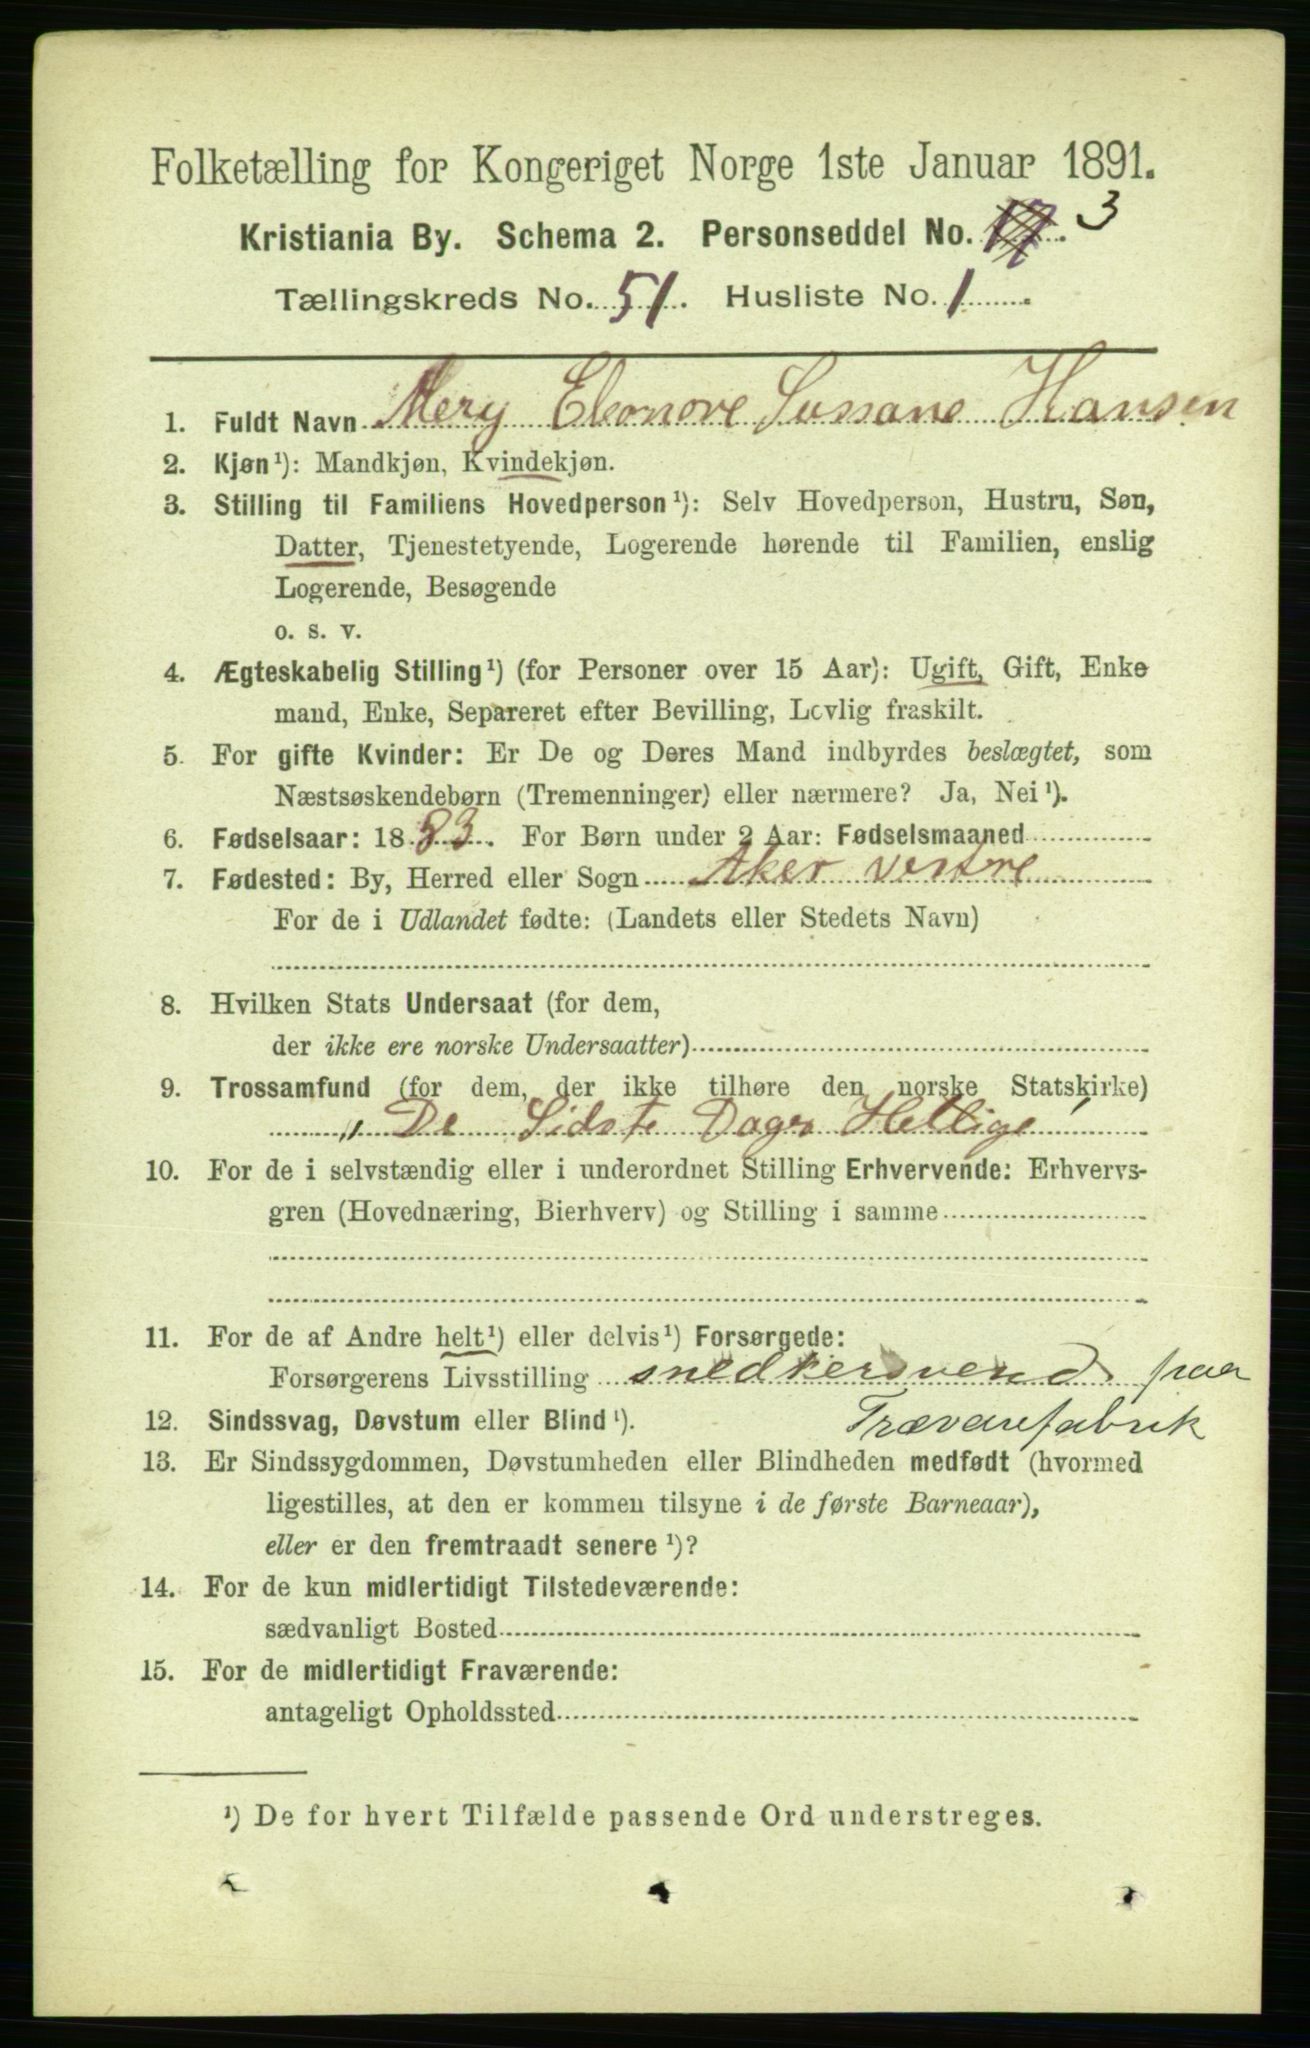 Folketælling for Kongeriget Norge 1ste Januar 1891.
Kristiania By. Schema 2. Personseddel No. 3
Tællingskreds No. 51. Husliste No. 1
1. Fuldt Navn Mery Eleonore Sussane Hansen
2. Kjøn¹): Mandkjøn, Kvindekjøn.
3. Stilling til Familiens Hovedperson¹): Selv Hovedperson, Hustru, Søn,
Datter, Tjenestetyende, Logerende hørende til Familien, enslig
Logerende, Besøgende
o. s. v.
4. Ægteskabelig Stilling¹) (for Personer over 15 Aar): Ugift, Gift, Enke
mand, Enke, Separeret efter Bevilling, Lovlig fraskilt.
5. For gifte Kvinder: Er De og Deres Mand indbyrdes beslægtet, som
Næstsøskendebørn (Tremenninger) eller nærmere? Ja, Nei¹).
6. Fødselsaar: 1883. For Børn under 2 Aar: Fødselsmaaned
7. Fødested: By, Herred eller Sogn Aker vestre
For de i Udlandet fødte: (Landets eller Stedets Navn)
8. Hvilken Stats Undersaat (for dem,
der ikke ere norske Undersaatter)
9. Trossamfund (for dem, der ikke tilhøre den norske Statskirke)
„De Sidste Dages Hellige"
10. For de i selvstændig eller i underordnet Stilling Erhvervende: Erhvervs-
gren (Hovednæring, Bierhverv) og Stilling i samme
11. For de af Andre helt¹) eller delvis¹) Forsørgede:
Forsørgerens Livsstilling snedkersvend paa
Trævarefabrik
12. Sindssvag, Døvstum eller Blind¹).
13. Er Sindssygdommen, Døvstumheden eller Blindheden medfødt (hvormed
ligestilles, at den er kommen tilsyne i de første Barneaar),
eller er den fremtraadt senere¹)?
14. For de kun midlertidigt Tilstedeværende:
sædvanligt Bosted
15. For de midlertidigt Fraværende:
antageligt Opholdssted
¹) De for hvert Tilfælde passende Ord understreges.